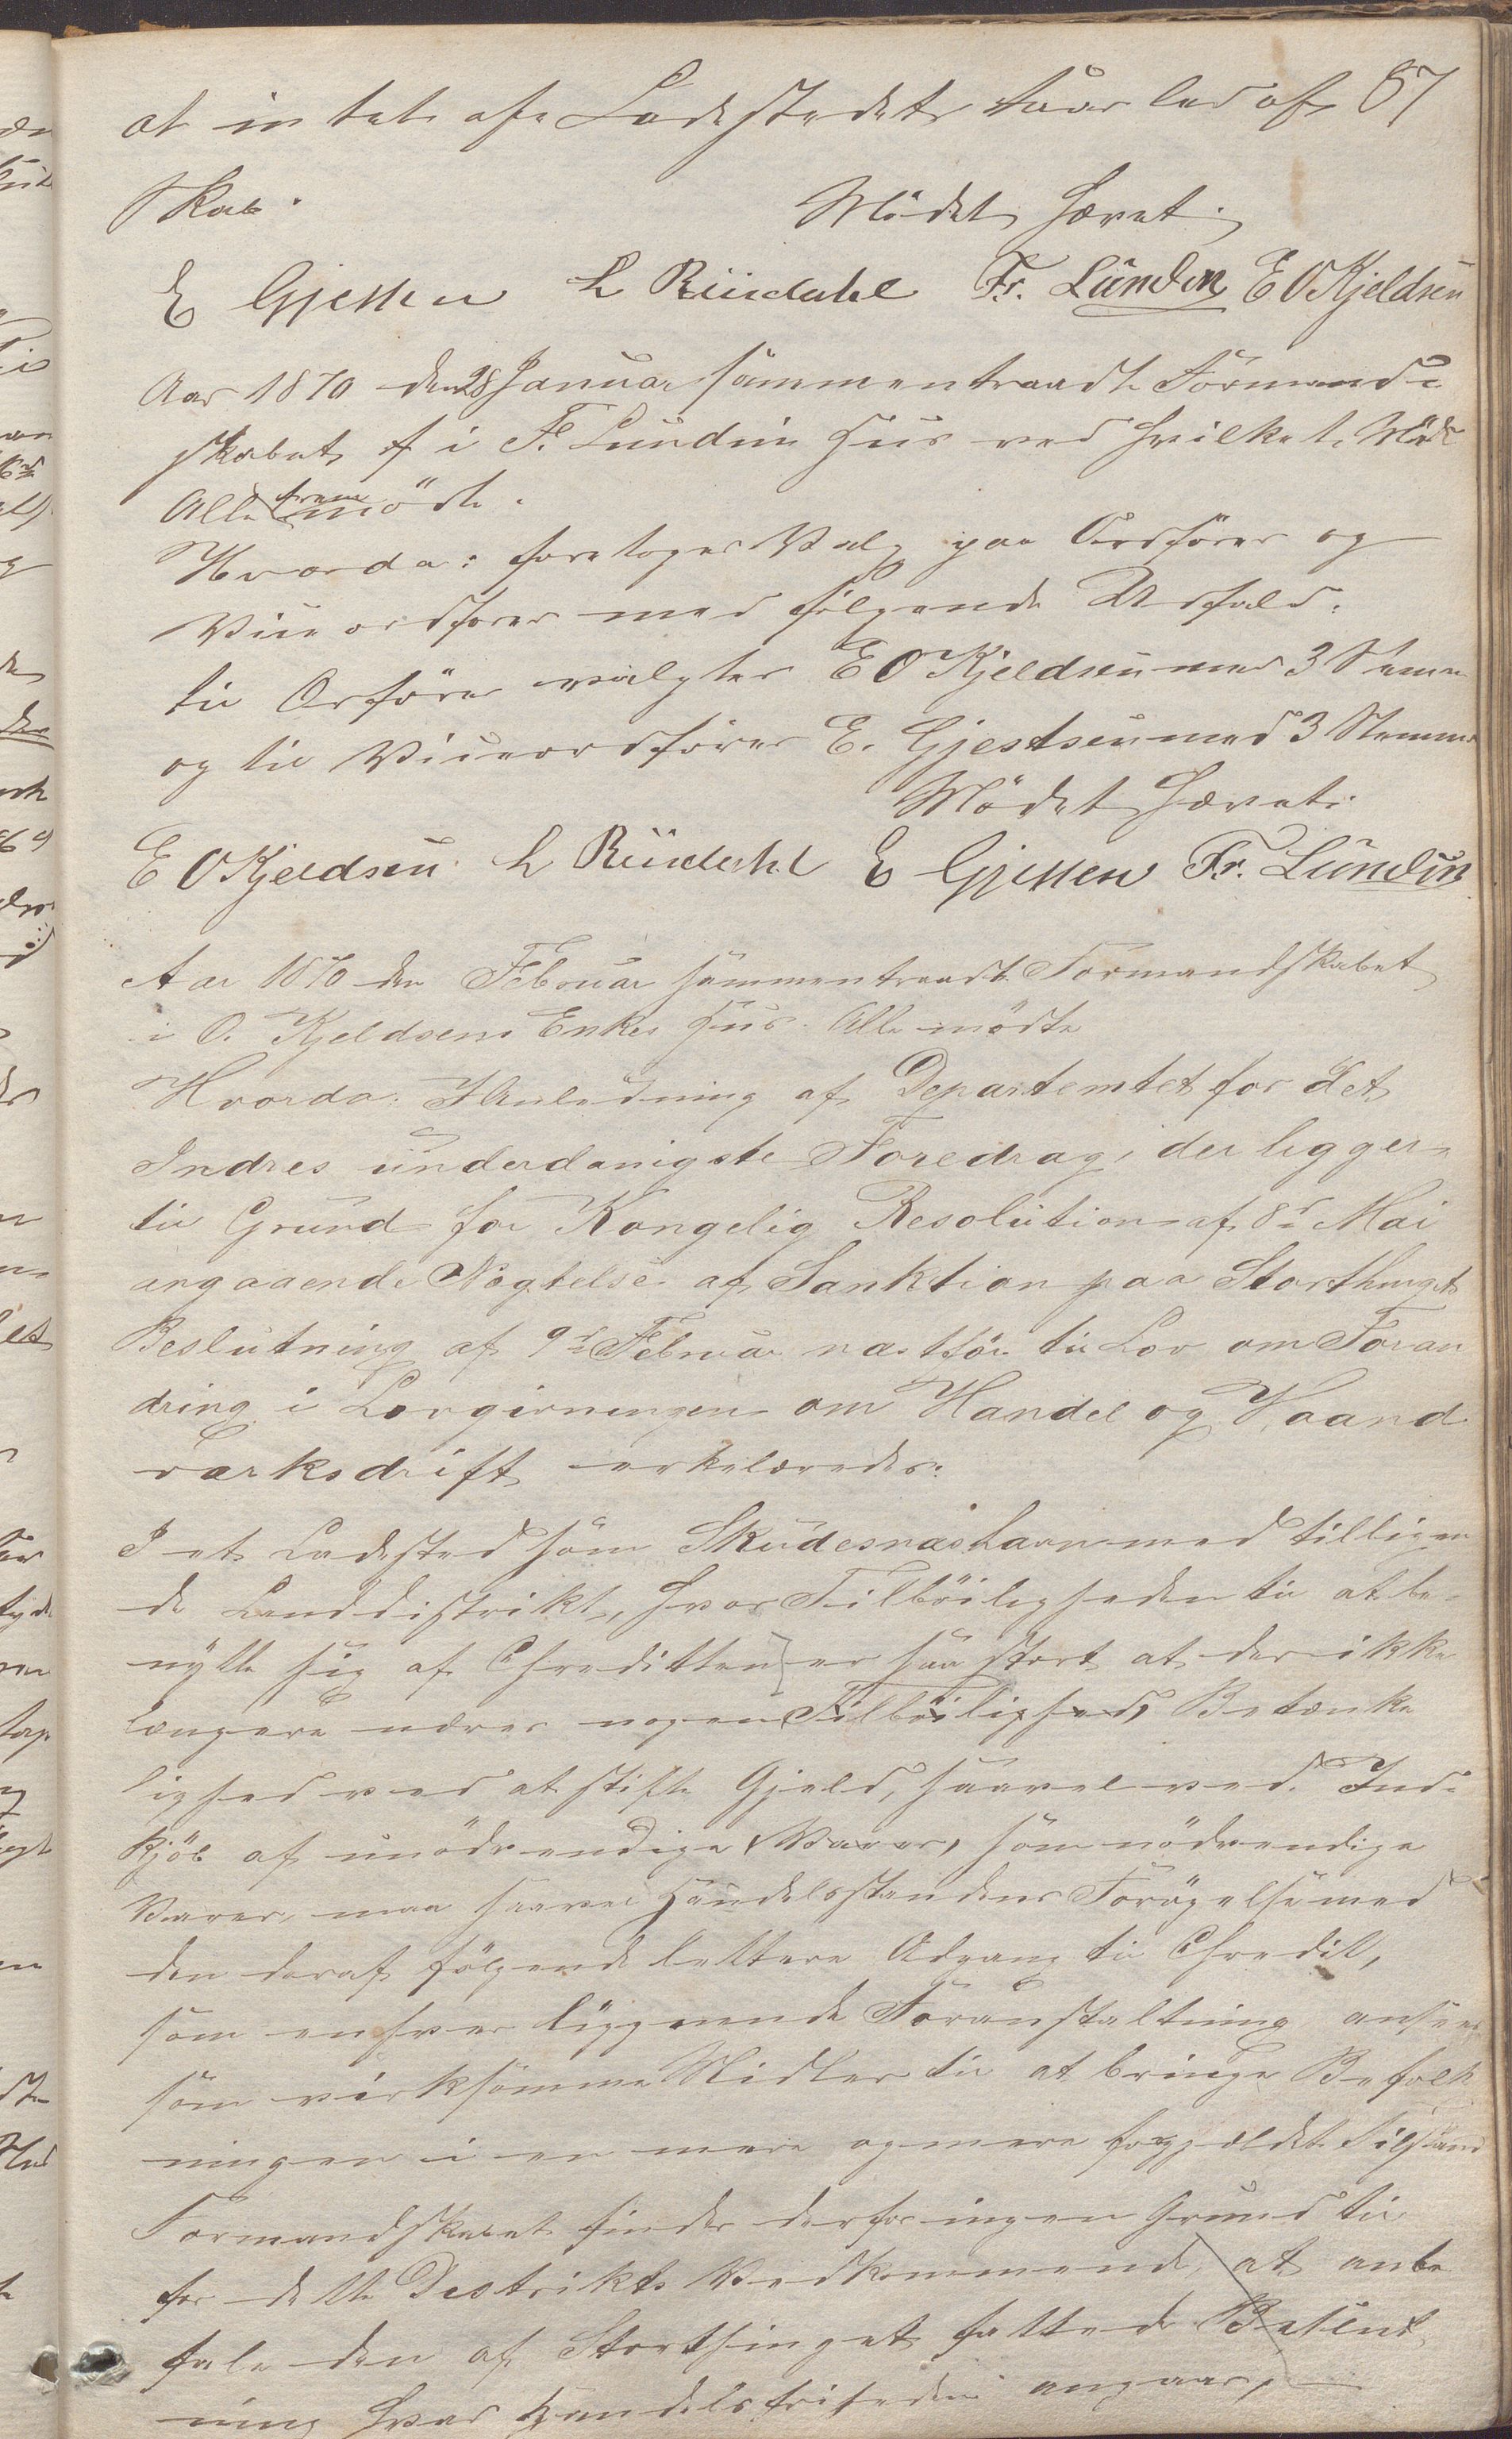 at intet af Ladestedet taar led af 87
Skab.
Mödet hævet.
E Gjessen L Ruudahl Fr. Lundin E O Kjeldsen
Aar 1870 den 28 Januar sammentraadte Formand-
skabet i F. Lundins Huus ved hvilket Möde
Alle fremmödte.
Hvorda: foretoges Valg paa Ordförer og
Viceordförer med fölgende Udfald:
til Orförer valgtes E O Kjeldsen med 3 Stemmer
og til Viceordförer E. Gjestsen med 3 Stemmer
Mödet hævet.
E O Kjeldsen L Ruudahl E Gjessen Fr. Lundin
Aar 1870 den Februar sammentraadte Formandskabet
i O. Kjeldsens Enkes Huus. Alle mödte
Hvorda: I Anledning af Departemtet for det
Indres underdanigste Foredrag, der ligger
til Grund for Kongelig Resolution af 8d Mai
angaaende Nægtelse af Sanktion paa Storthingets
Beslutning af 9d Februar næstför til Lov om Foran
dring i Lovgivningen om Handel og Haand
værksdrift erkelæredes:
I et Ladested som Skudesnæshavn med tilligen
de Landdistrikt, hvor Tilböiligheden til at be-
nytte sig af Chreditten er saa stort at der ikke
længere næres nogen Tilböilighed, Betænke
lighed ved at stifte Gjeld, saavel ved Ind-
kjöb af unödvendige Varer, som nödvendige
Varer, maa saavel Handelsstandens Forögelse med
den deraf fölgende lettere Adgang til Chredit,
som enhver liggnende Foranstaltning ansees
som virksomme Midler til at bringe Befolk
ningen i en mere og mere forgjældet Tilstand
Formandskabet finder derfor ingen Grund til
for dette Destrikts Vedkommende, at anbe
fale den af Storthinget fattede Beslut
ning hvad Handelsfriheden angaar,